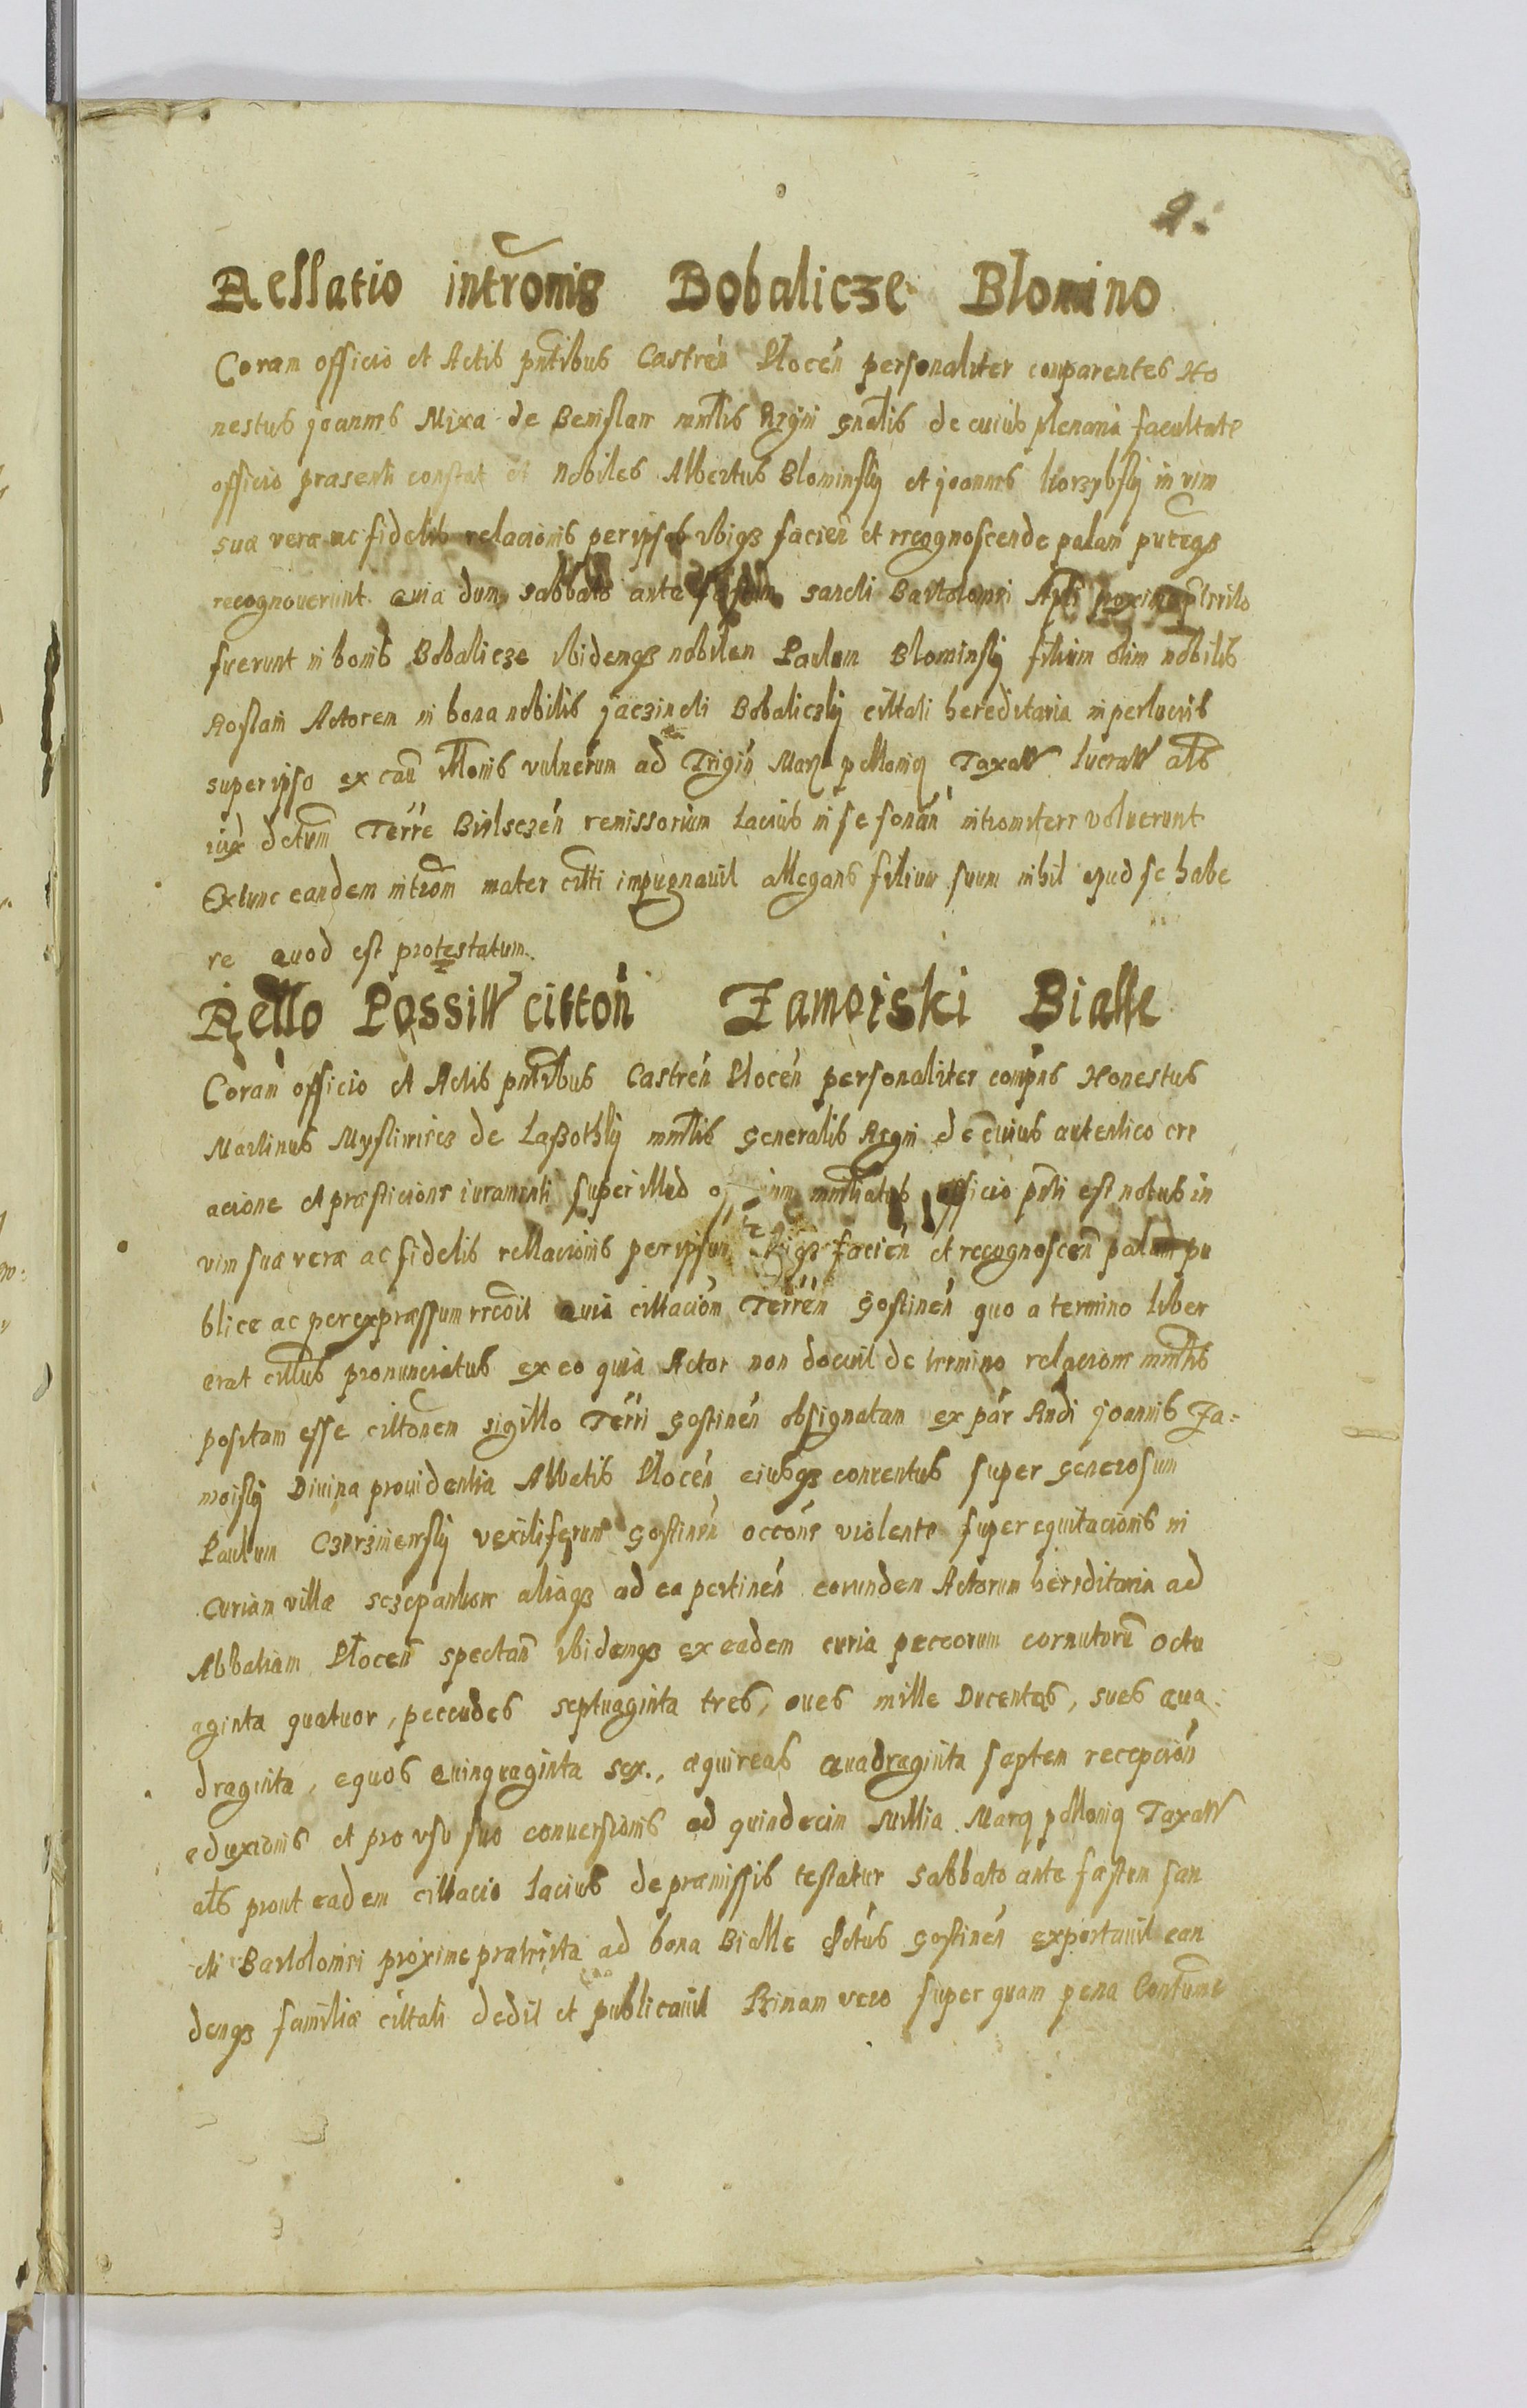 2.
Rellatio intromis Bobalicze Blomino
Coram officio et Actis pntibus Castren Plocen personaliter conparentes Ho
nestus joannes Mixa de Benislaw mnlis Regni gnalis de cuius plenaria facultate
officio præsenti constat et Nobiles Albertus Blominsky et joannes in vim
suæ veræ ac fidelis relacionis per ipsos vbiqz facien et recognoscende palam
recognouerunt. quia dum sabbato ante festum sancti Bartolomei Apli proxime
fuerunt in bonis Bobalicze ibidemqz nobilem Paulum Blominsky filium olim nobilis
Roslani Actorem in bona nobilis jaczincti Bobaliczky cittati hereditaria in per lucris
super ipso ex cau vulnerum ad Trigin Marz pollonicq Taxatt lucratt als
iux dctum Terre Bielsczen remissorium Lacius in se sonan intromittere voluerunt
Extunc eandem introm mater citti impugnauit allegans filium suum nihil apud se habe
re quod est protestatum.
Rello Possitt citton Zamoiski Bialle
Coram officio et Actis pntibus Castren Plocen personaliter compns Honestus
Martinus Mysliwiecz de Laßothky mnlis generalis Regni de cuius autentico cre
acione et præsticione iuramenti super illud officio pnti est notus in
vim suæ veræ ac fidelis rellacionis per ipsum vbiqz facien et recognoscen palam pu
blice ac per expræssum recoit quia cittacion Terren Gostinen quo a termino liber
erat cittus pronunciatus ex eo quia Actor non docuit de termino relacione mnlis
positam esse cittonem sigillo Terri Gostinen obsignatam ex par Rndi joannis Za=
moisky Diuina prouidentia Abbatis Plocen eiusqz conventus super generosum
Paulum vexiliferum Gostinen occone violente super equitacionis in
curiam villæ aliaqz ad ea pertinen eorundem Actorum hereditaria ad
Abbatiam Plocen spectan ibidemqz ex eadem curia peccorum cornutoru octu
aginta quatuor, peccudes septuaginta tres, oues mille Ducentas, sues qua.
draginta, equos quinquaginta sex., æquireas quadraginta septem recepcion
eduxionis et pro vsu suo conuersionis ad quindecim Millia Marq pollonicq Taxatt
als prout eadem cittacio Lacius de præmissis testatur sabbato ante fæstum san
cti Bartolomei proxime præterita ad bona Bialle dctus Gostinen exportauit ean
demqz familiæ cittati dedit et publicauit Ptinam vero super quam pena Contume